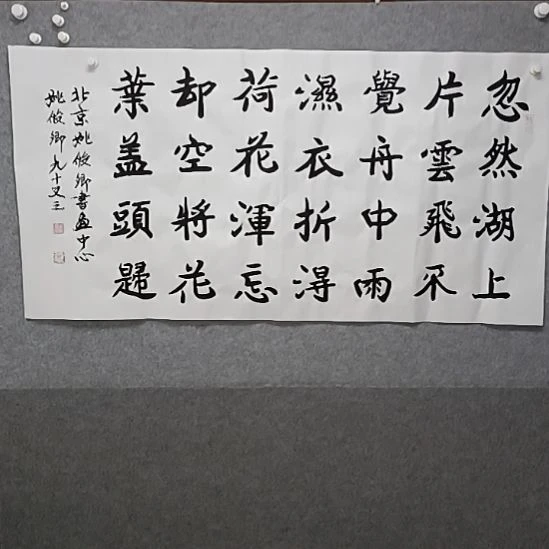 忽然湖上
片雲飛不
覺舟中雨
濕衣折得
荷花渾忘
却空將花
葉盖頭歸
北京姚俊卿書画中心
姚俊卿九十又三